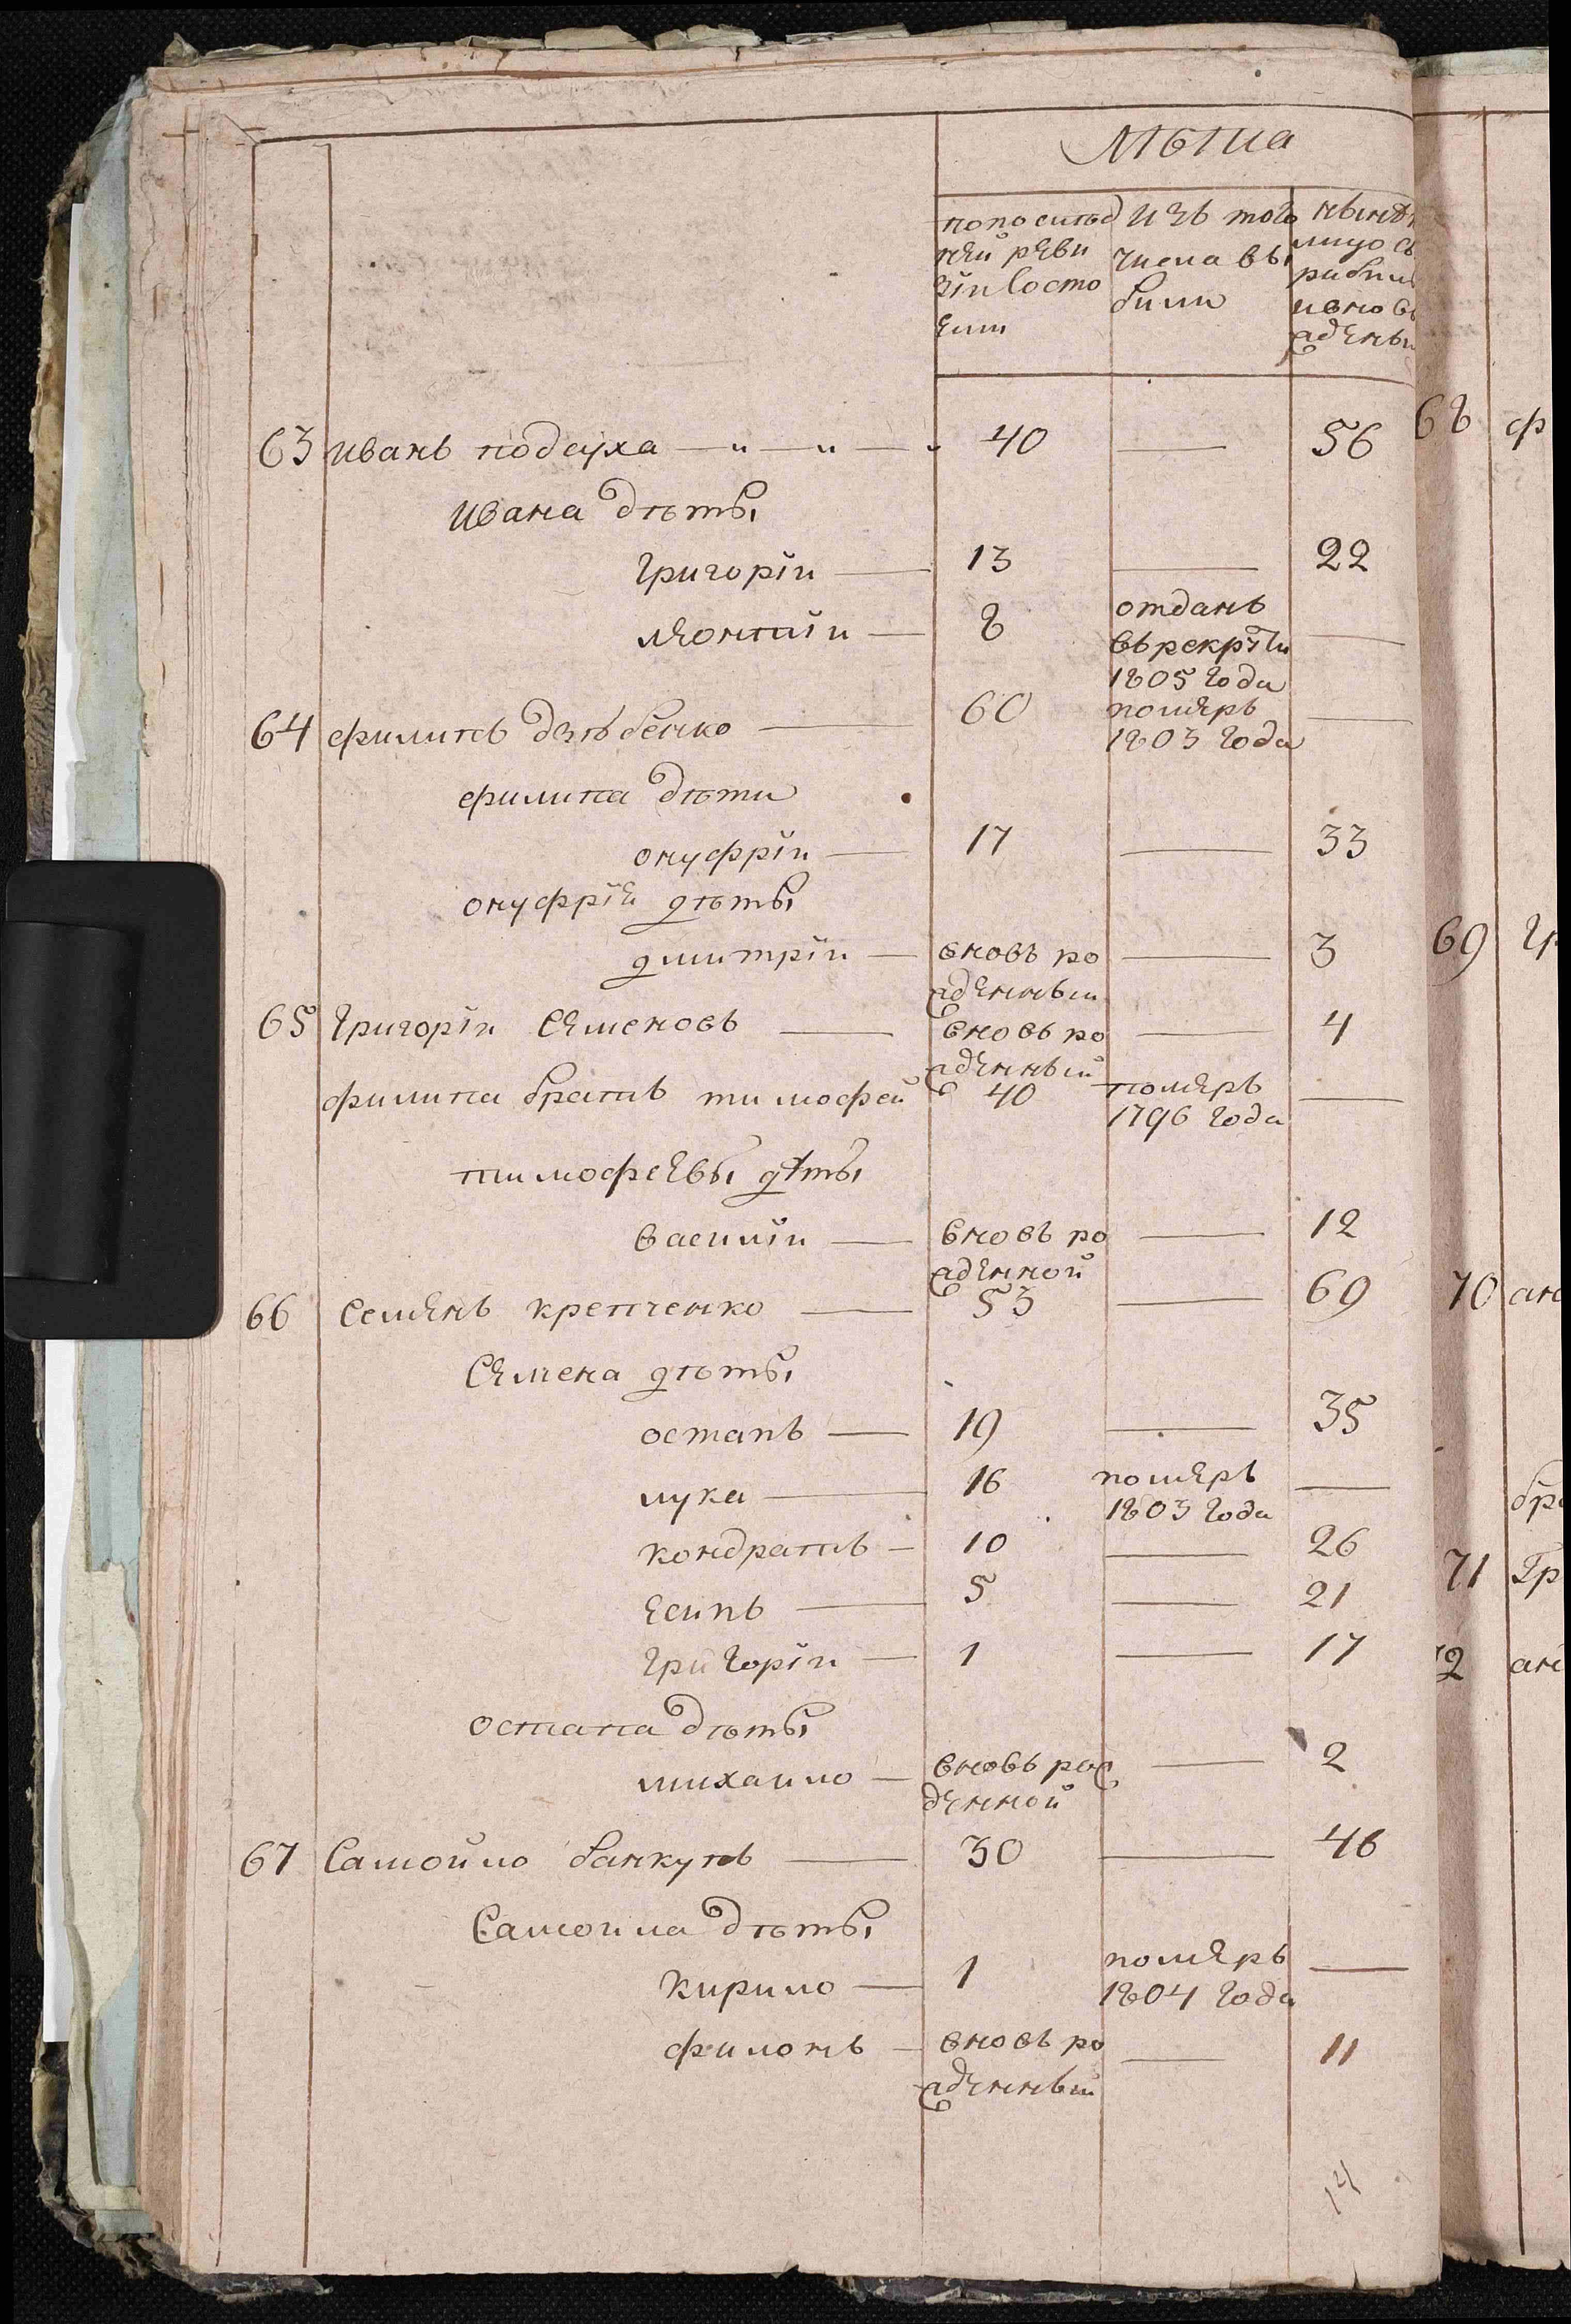 Лѣта
попослѣд
ней реви
зіи Состо
яли
Изъ того
числа вы
были
нынѣ
лицо съ
рибыл
ивновь
жденны
63 иванъ подауха — 40 — 56
ивана дѣты
Григоріи — 13 — 22
леонтіи — 8 отданъ —
въ рекруты
1805 года
64 филипъ дзюбенко — 60 померъ —
1803 года
филипа дѣти
онуфріи — 17 — 33
онуфрія дѣты
дмитріи — вновь ро — 3
жденныи
65 Григоріи Семеновъ — вновь ро — 4
жденный
филипа братъ тимофей 40 померъ —
1796 года
тимофеевы дѣты
василіи — вновь ро — 12
жденной
66 Семенъ крепченко — 53 — 69
Семена дѣты
остапъ — 19 — 35
лука — 16 померъ —
1803 года
кондратъ — 10 — 26
есипъ — 5 — 21
Григоріи — 1 — 17
остапа дѣты
михаило — вновь рож — 2
денной
67 Самойло банкутъ — 30 — 46
Самоила дѣты
кирило — 1 померъ —
1804 года
филонъ — вновь ро — 11
жденный
14
68 ф
69 Гр
70 ан
бра
71 Гр
72 ан